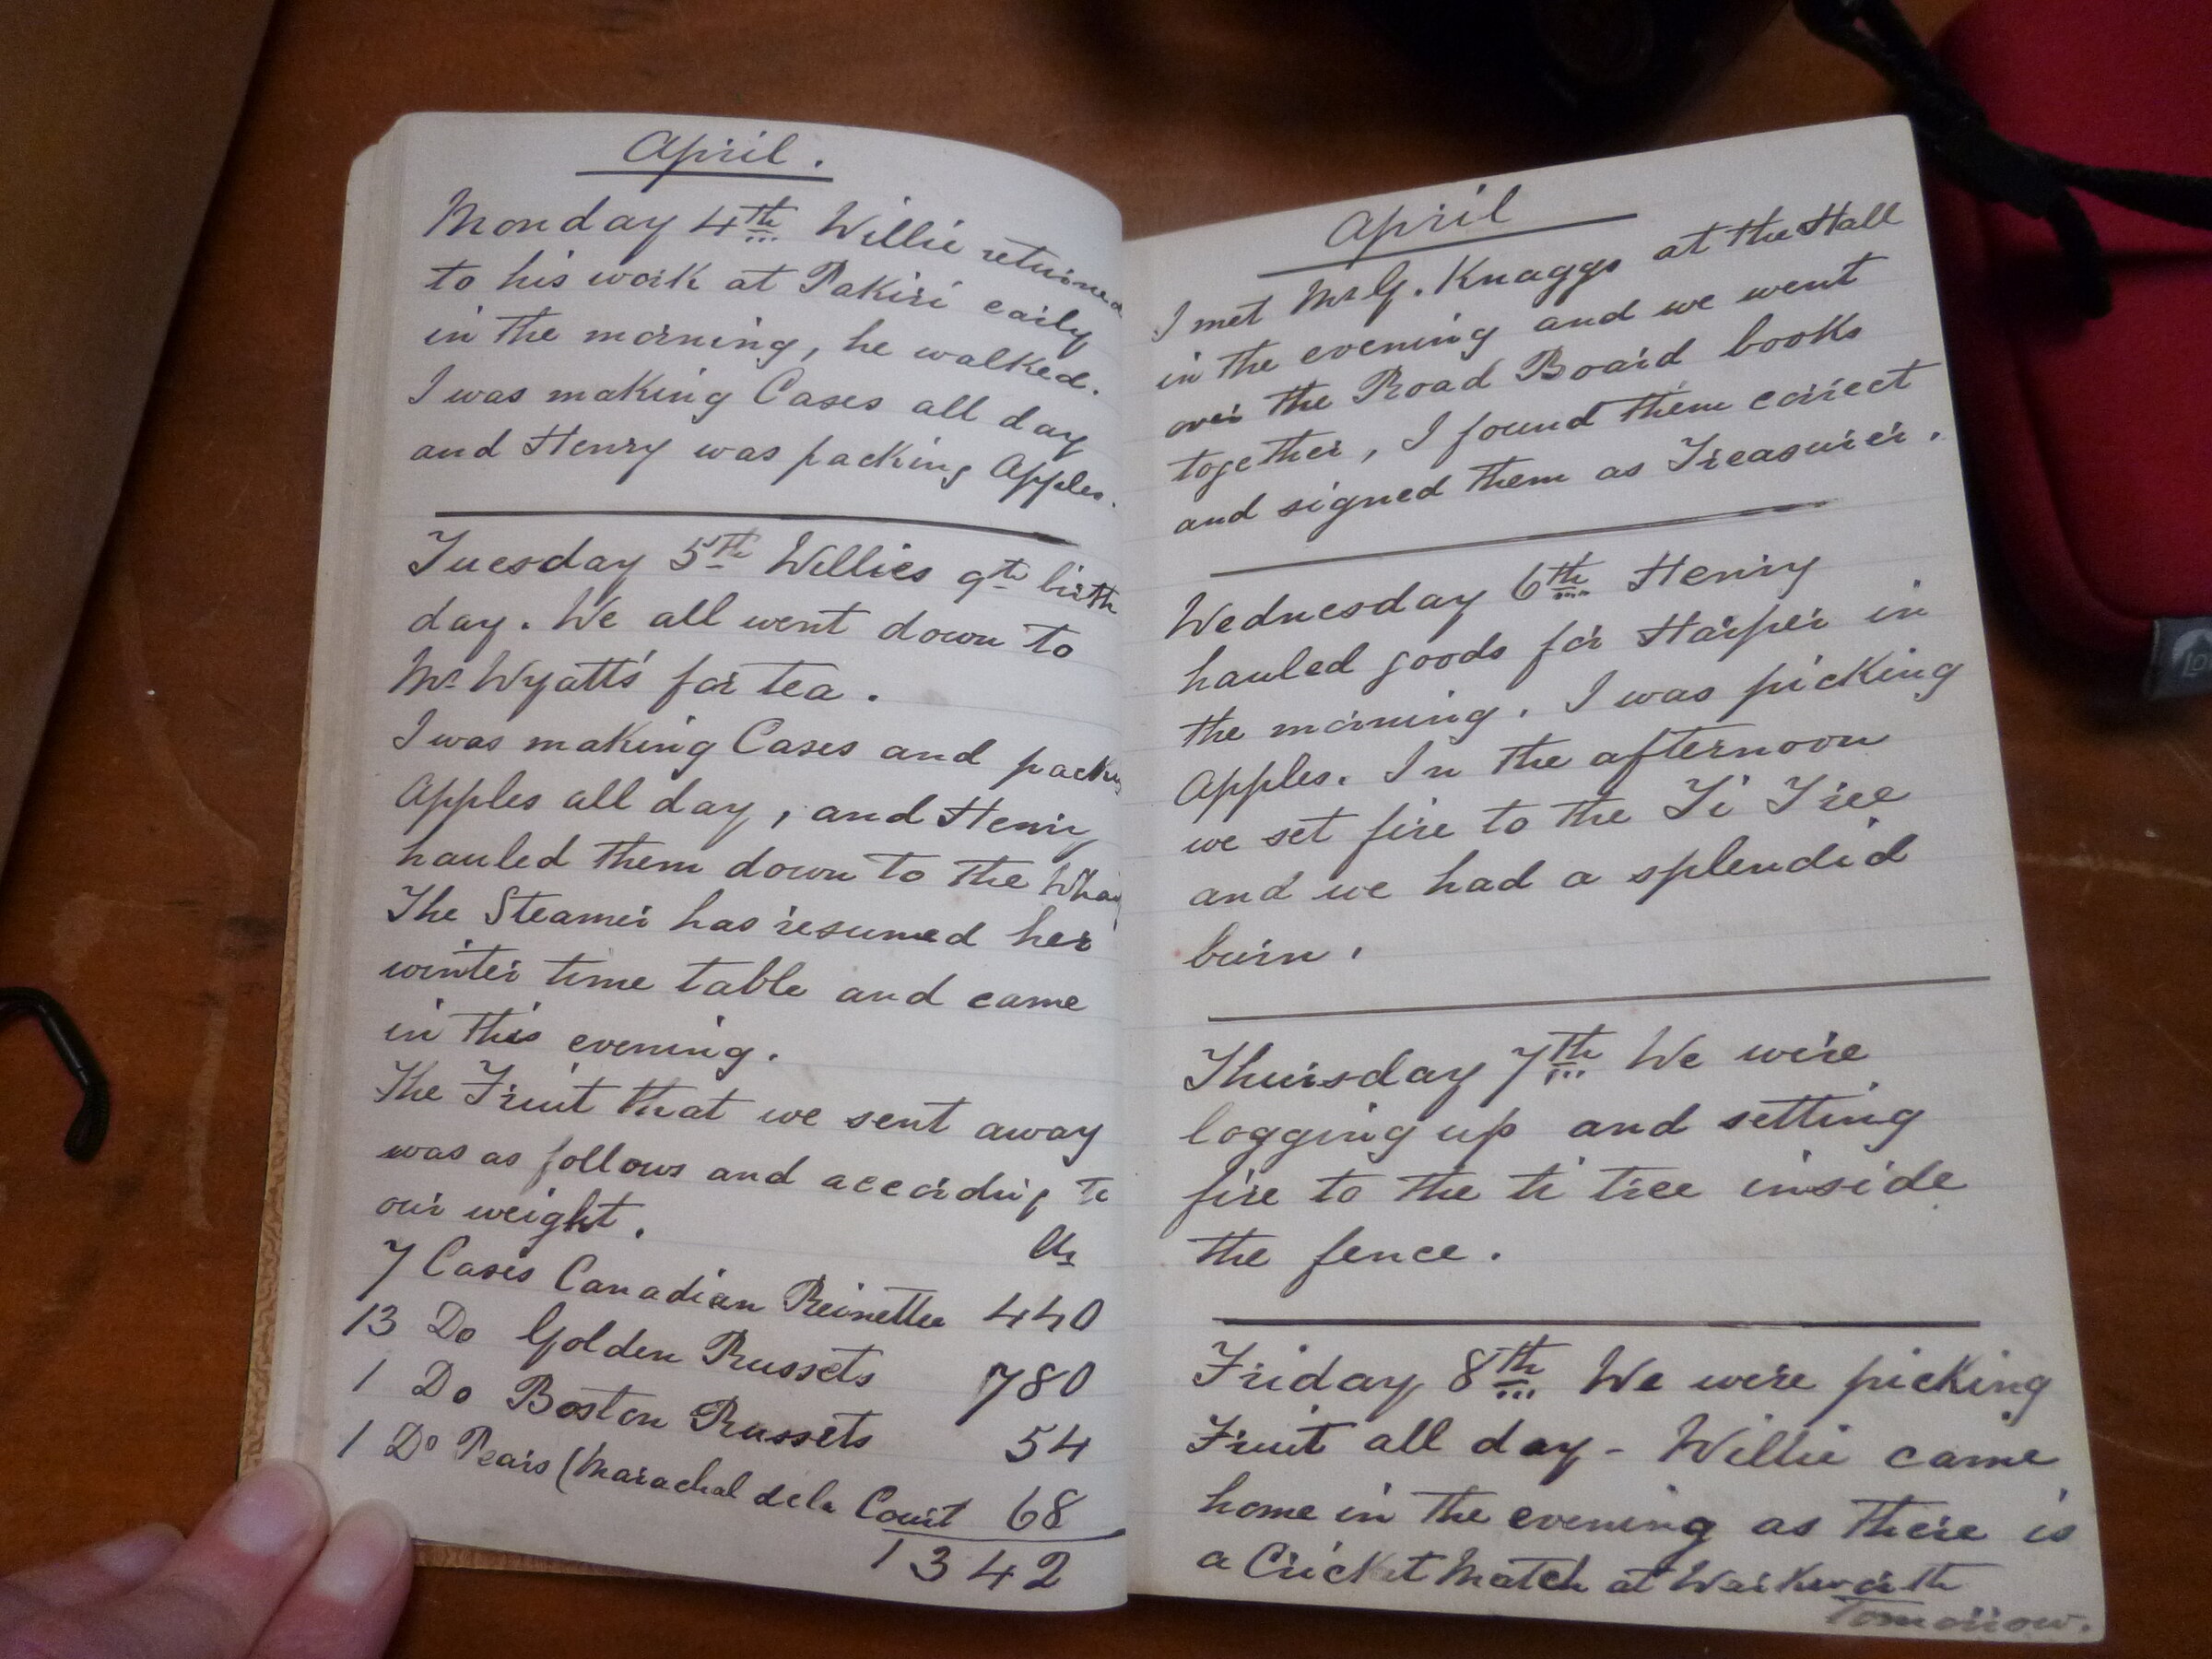 April.
Monday 4th Willie returned
to his work at Pakiri early
in the morning, he walked.
I was making Cases all day
and Henry was packing Apples.
Tuesday 5th Willies 9th birth
day. We all went down to
Mr Wyatt's for tea.
I was making Cases and packing
Apples all day, and Henry
hauled them down to the
The Steamer has resumed her
winter time table and came
in this evening.
The Fruit that we sent away
was as follows and according to
our weight. lbs
7 Cases Canadian Reinettes 440
13 Do Golden Russets 780
1 Do Boston Russets 54
1 Do Pears (Marachal dela Court 68
1342
April
I met Mr G. Knaggs at the Hall
in the evening and we went
over the Road Board books
together, I found them correct
and signed them as Treasurer.
Wednesday 6th Henry
hauled goods for Harper in
the morning. I was picking
Apples. In the afternoon
we set fire to the Ti Tree
and we had a splendid
burn.
Thursday 7th We were
logging up and setting
fire to the ti tree inside
the fence.
Friday 8th We were picking
Fruit all day - Willie came
home in the evening as there is
a Cricket Match at Warkworth
tomorrow.